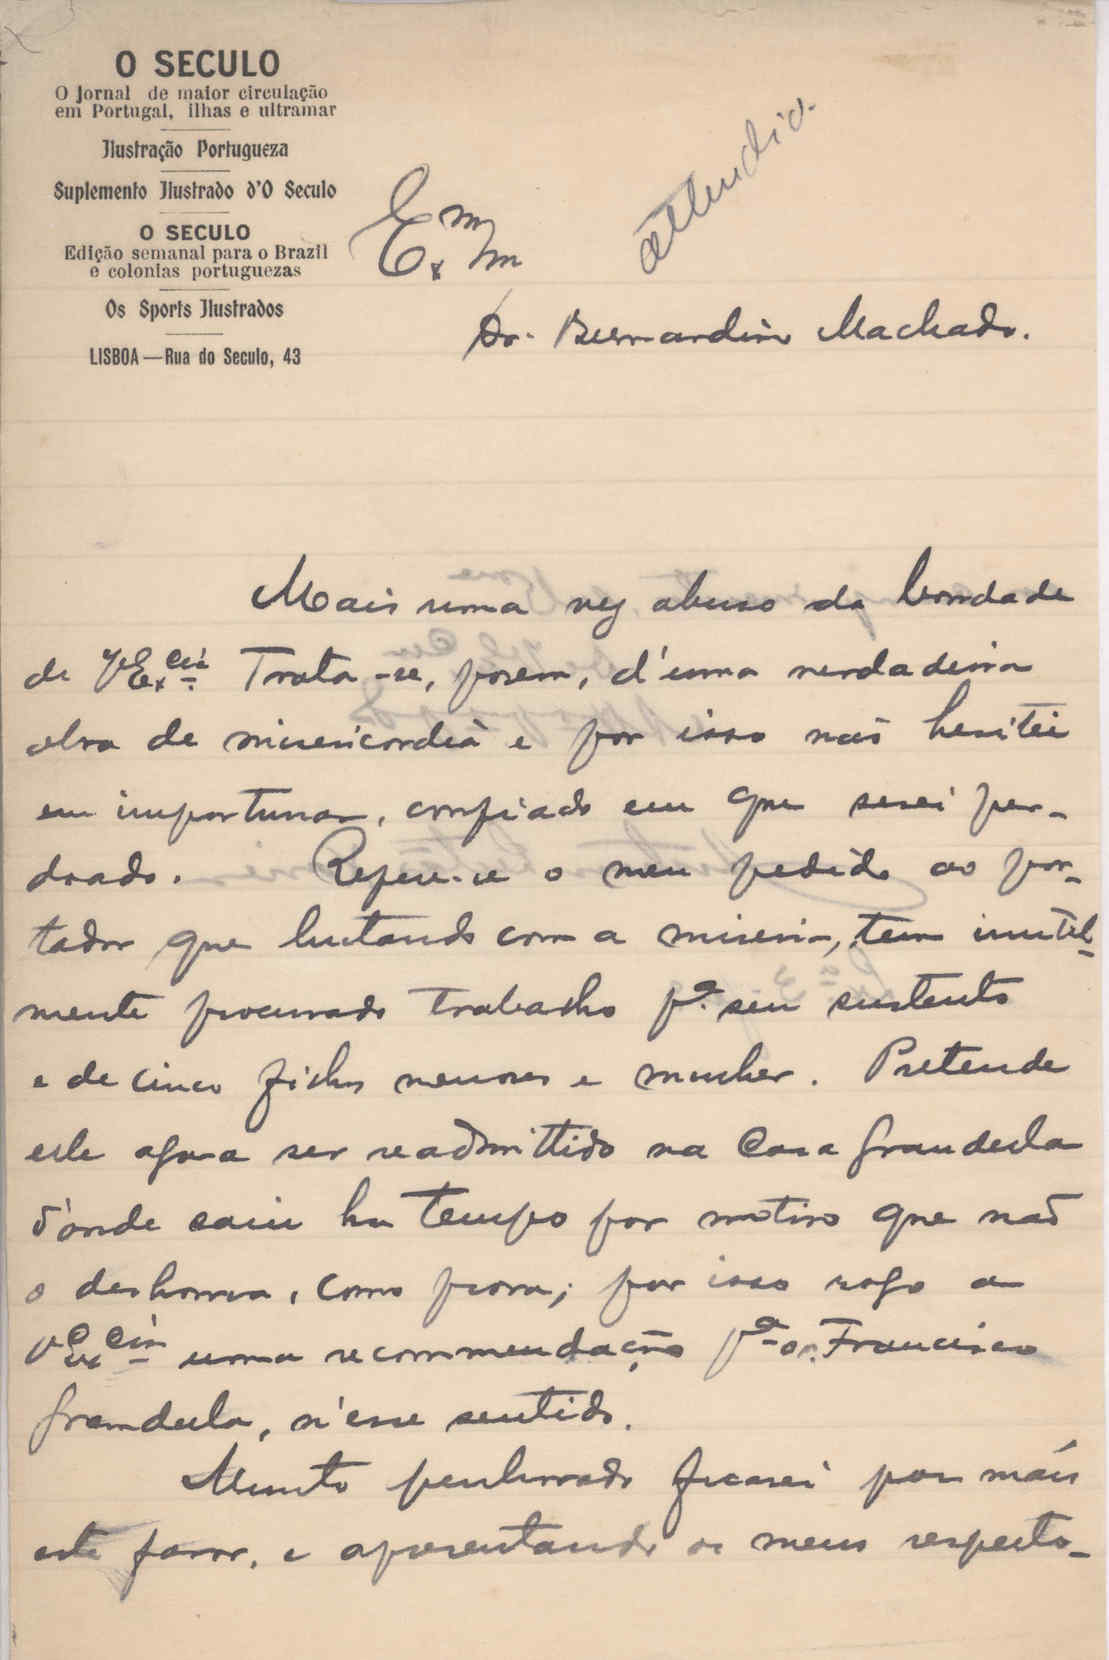 O SECULO
O Jornal de maior circulação
em Portugal, ilhas e ultramar
Ilustração Portugueza
Suplemento Ilustrado d'O Seculo
O SECULO
Edição semanal para o Brazil
e colonias portuguezas
Os Sports Ilustrados
LISBOA — Rua do Seculo, 43
attendido.
Exmo
Dr. Bernardino Machado.
Mais uma vez abuso da bondade
de V. Excia Trata-se, porem, d'uma verdadeira
obra de misericordia e por isso não hesitei
em importunar, confiado em que serei per-
doado. Refere-se o meu pedido ao por-
tador que luctando com a miseria, tem inutil-
mente procurado trabalho pa. seu sustento
e de cinco filhos menores e mulher. Pretende
ele agora ser readmittido na Casa Grandella
d'onde saiu ha tempo por motivo que não
o deshonra, como prova; por isso rogo a
V. Excia uma recommendação pa o sr. Francisco
Grandella, n'esse sentido.
Muito penhorado ficarei por mais
este favor, e apresentando os meus respeito-